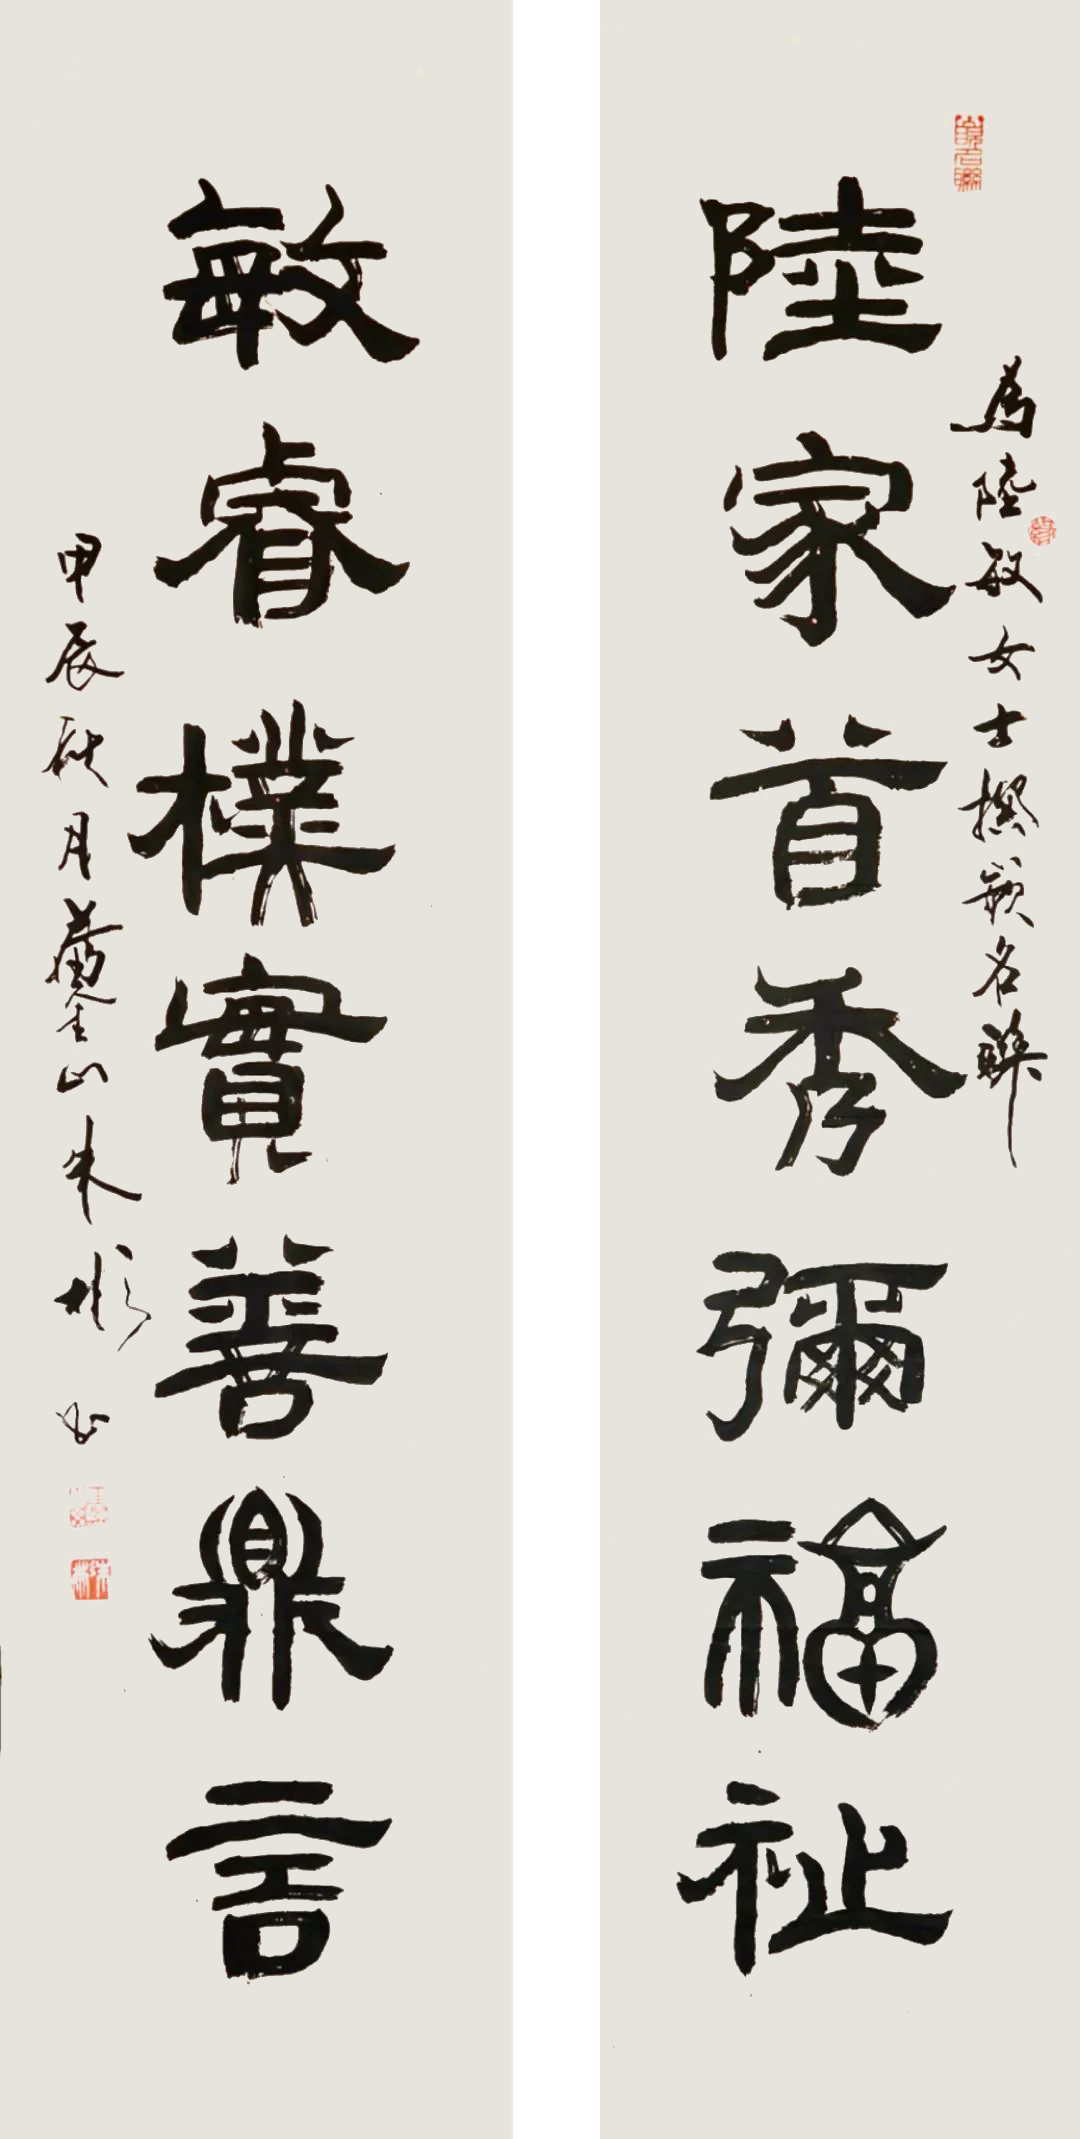 為陸敏女士撰嵌名聯
陸家首秀彌福祉
敏睿樸實善鼎言
甲辰秋月萬金山朱彬书